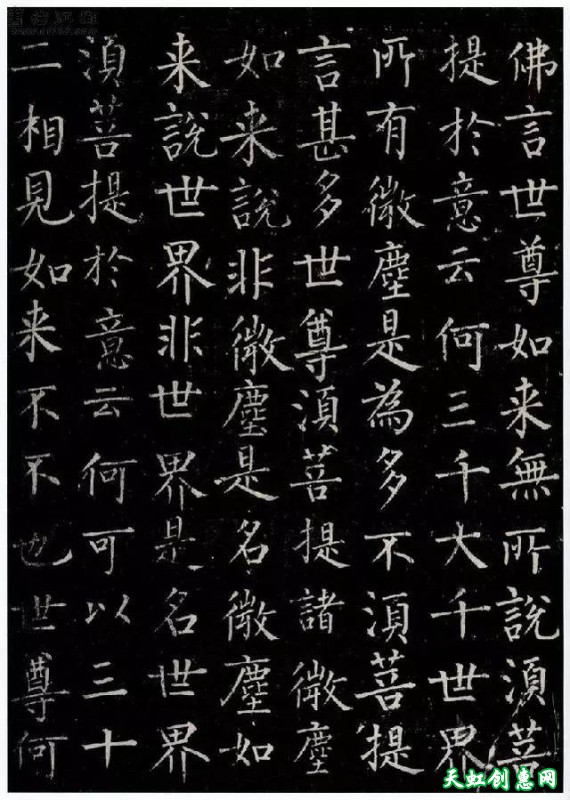 佛言世尊如来無所說湏菩
提於意云何三千大千世界
所有微塵是為多不湏菩提
言甚多世尊湏菩提諸微塵
如来說非微塵是名微塵如
来說世界非世界是名世界
湏菩提於意云何可以三十
二相見如来不不也世尊何
天虹创惠网